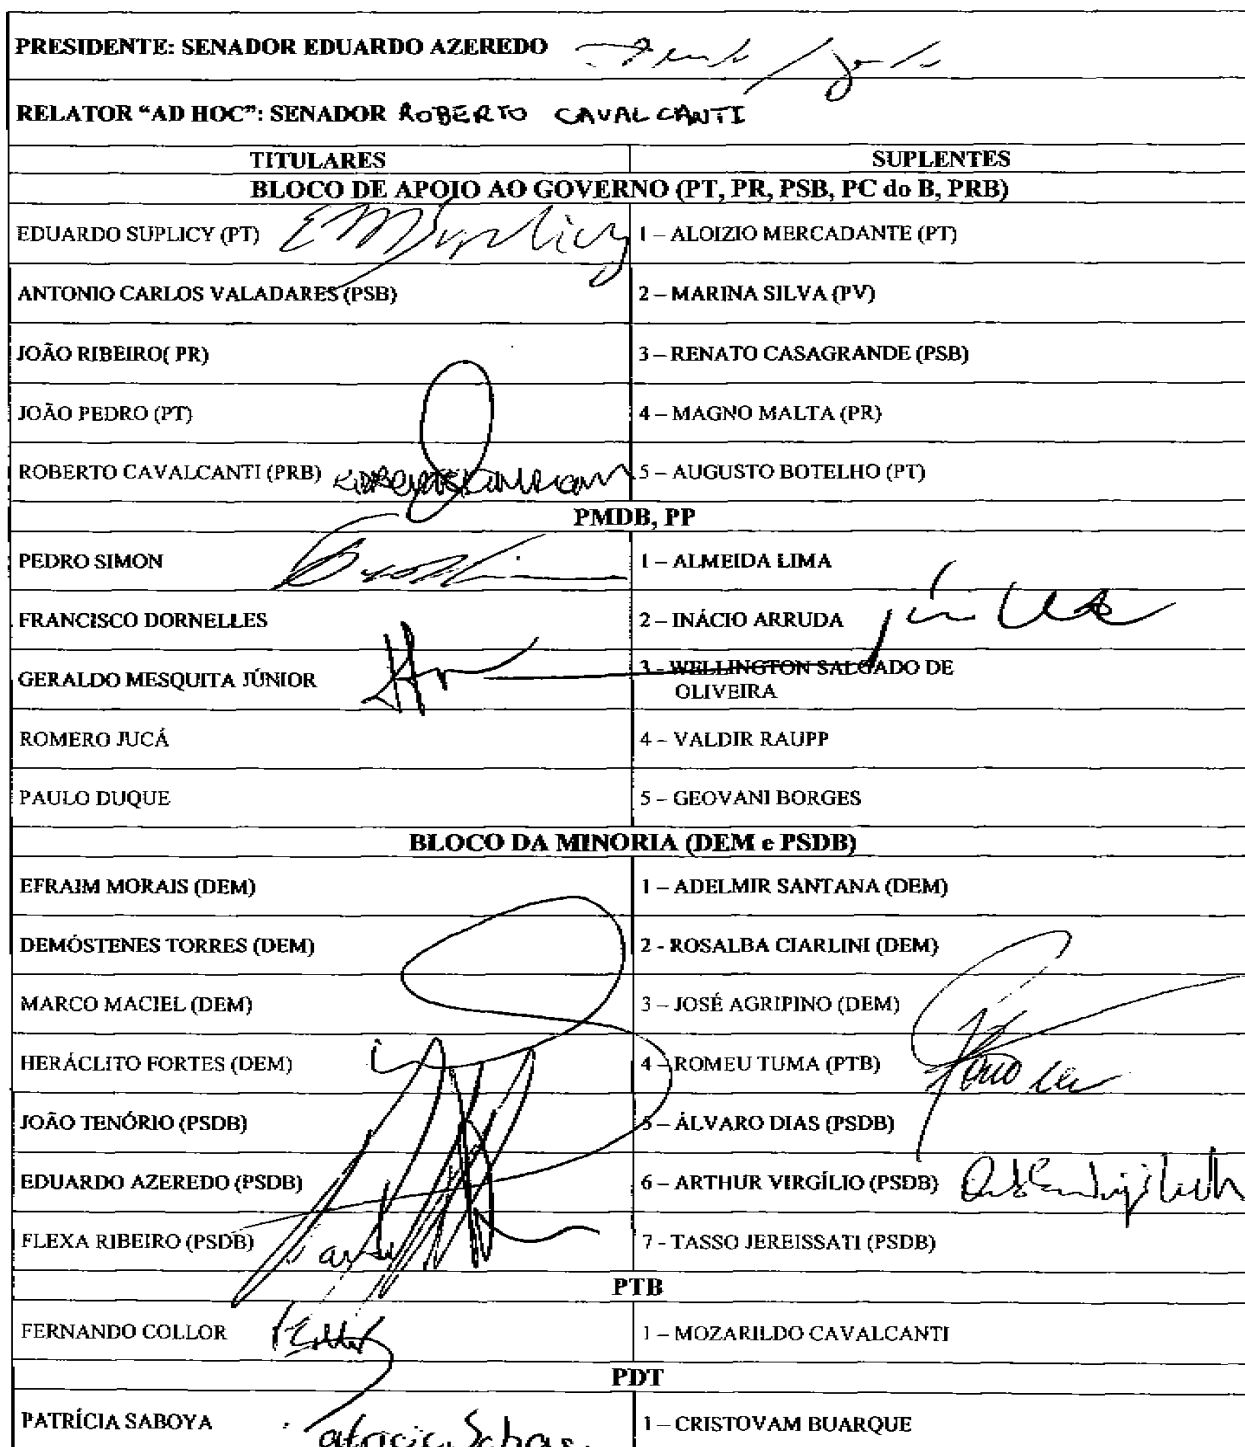 PRESIDENTE: SENADOR EDUARDO AZEREDO
RELATOR "AD HOC": SENADOR ROBERTO CAVALCANTI
TITULARES SUPLENTES
BLOCO DE APOIO AO GOVERNO (PT, PR, PSB, PC do B, PRB)
EDUARDO SUPLICY (PT) EMSuplicy 1 – ALOIZIO MERCADANTE (PT)
ANTONIO CARLOS VALADARES (PSB) 2 – MARINA SILVA (PV)
JOÃO RIBEIRO( PR) 3 – RENATO CASAGRANDE (PSB)
JOÃO PEDRO (PT) 4 – MAGNO MALTA (PR)
ROBERTO CAVALCANTI (PRB) 5 – AUGUSTO BOTELHO (PT)
PMDB, PP
PEDRO SIMON 1 – ALMEIDA LIMA
FRANCISCO DORNELLES 2 – INÁCIO ARRUDA
GERALDO MESQUITA JÚNIOR 3 - WELLINGTON SALGADO DE
OLIVEIRA
ROMERO JUCÁ 4 – VALDIR RAUPP
PAULO DUQUE 5 – GEOVANI BORGES
BLOCO DA MINORIA (DEM e PSDB)
EFRAIM MORAIS (DEM) 1 – ADELMIR SANTANA (DEM)
DEMÓSTENES TORRES (DEM) 2 - ROSALBA CIARLINI (DEM)
MARCO MACIEL (DEM) 3 – JOSÉ AGRIPINO (DEM)
HERÁCLITO FORTES (DEM) 4 – ROMEU TUMA (PTB)
JOÃO TENÓRIO (PSDB) 5 – ÁLVARO DIAS (PSDB)
EDUARDO AZEREDO (PSDB) 6 – ARTHUR VIRGÍLIO (PSDB)
FLEXA RIBEIRO (PSDB) 7 - TASSO JEREISSATI (PSDB)
PTB
FERNANDO COLLOR 1 – MOZARILDO CAVALCANTI
PDT
PATRÍCIA SABOYA Patricia Saboya 1 – CRISTOVAM BUARQUE